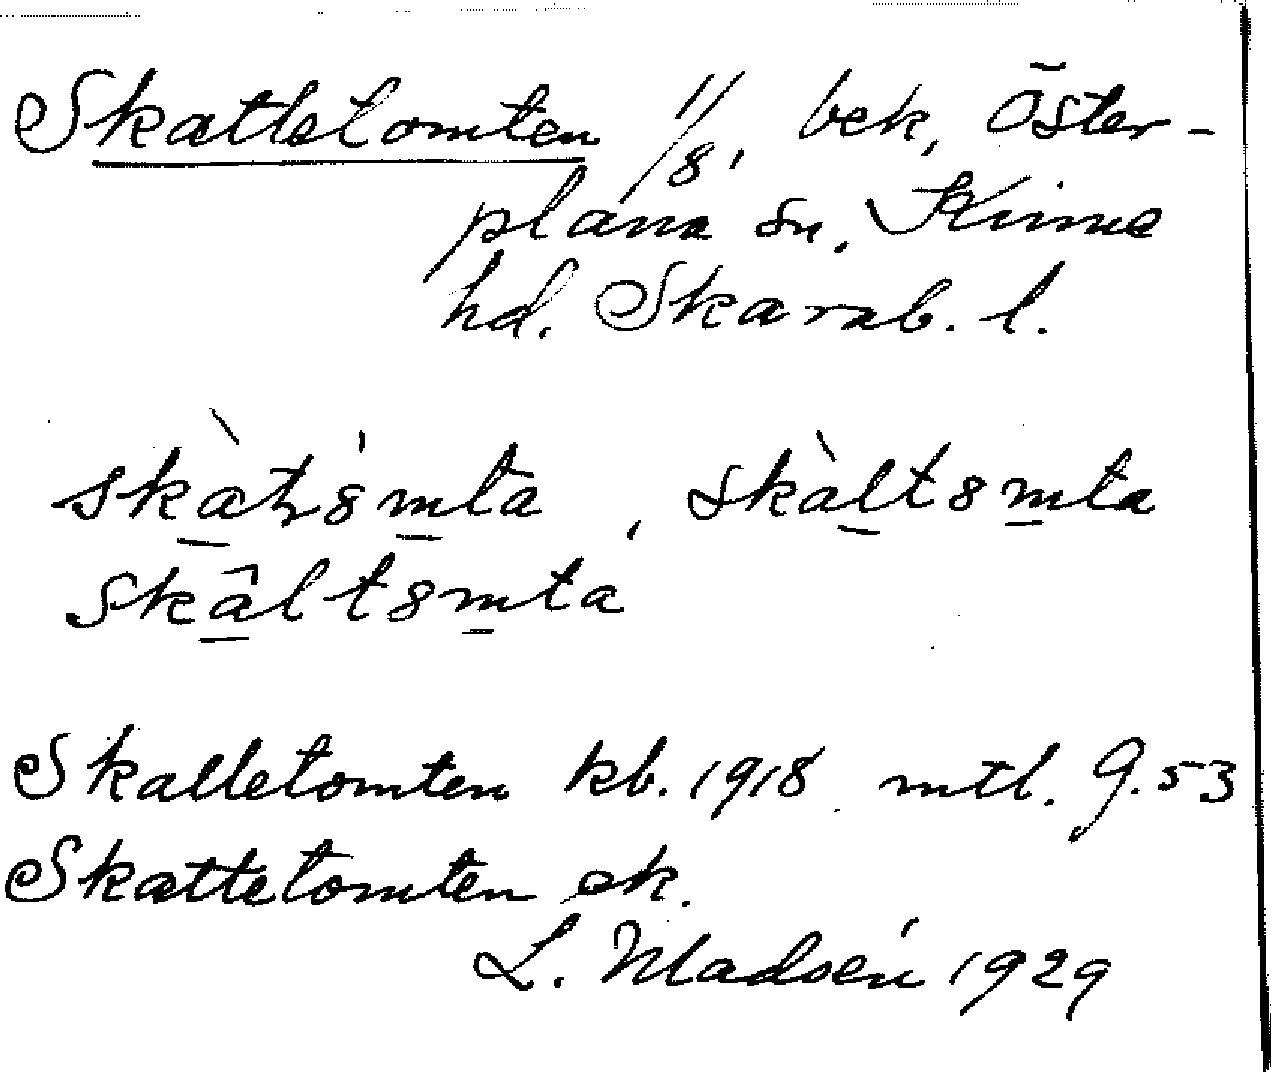 Skattetomten 1/8, bek, Öster-
plana sn, Kinne
hd. Skarab. l.
skàt₎8mta, skàlt8mta
skâlt8mta
Skalletomten kb. 1918 mtl. 9.53
Skattetomten ek.
L. Madsén 1929